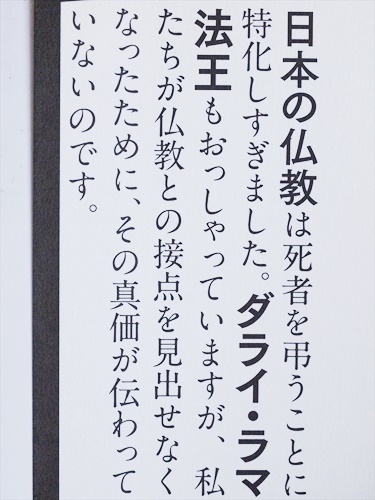 日本の仏教は死者を弔うことに
特化しすぎました。ダライ・ラマ
法王もおっしゃっていますが、私
たちが仏教との接点を見出せなく
なったために、その真価が伝わって
いないのです。